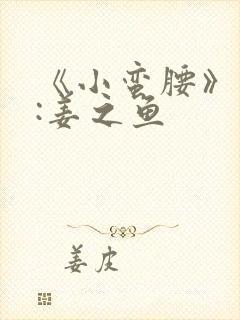 《小蛮腰》
:姜之鱼
姜皮